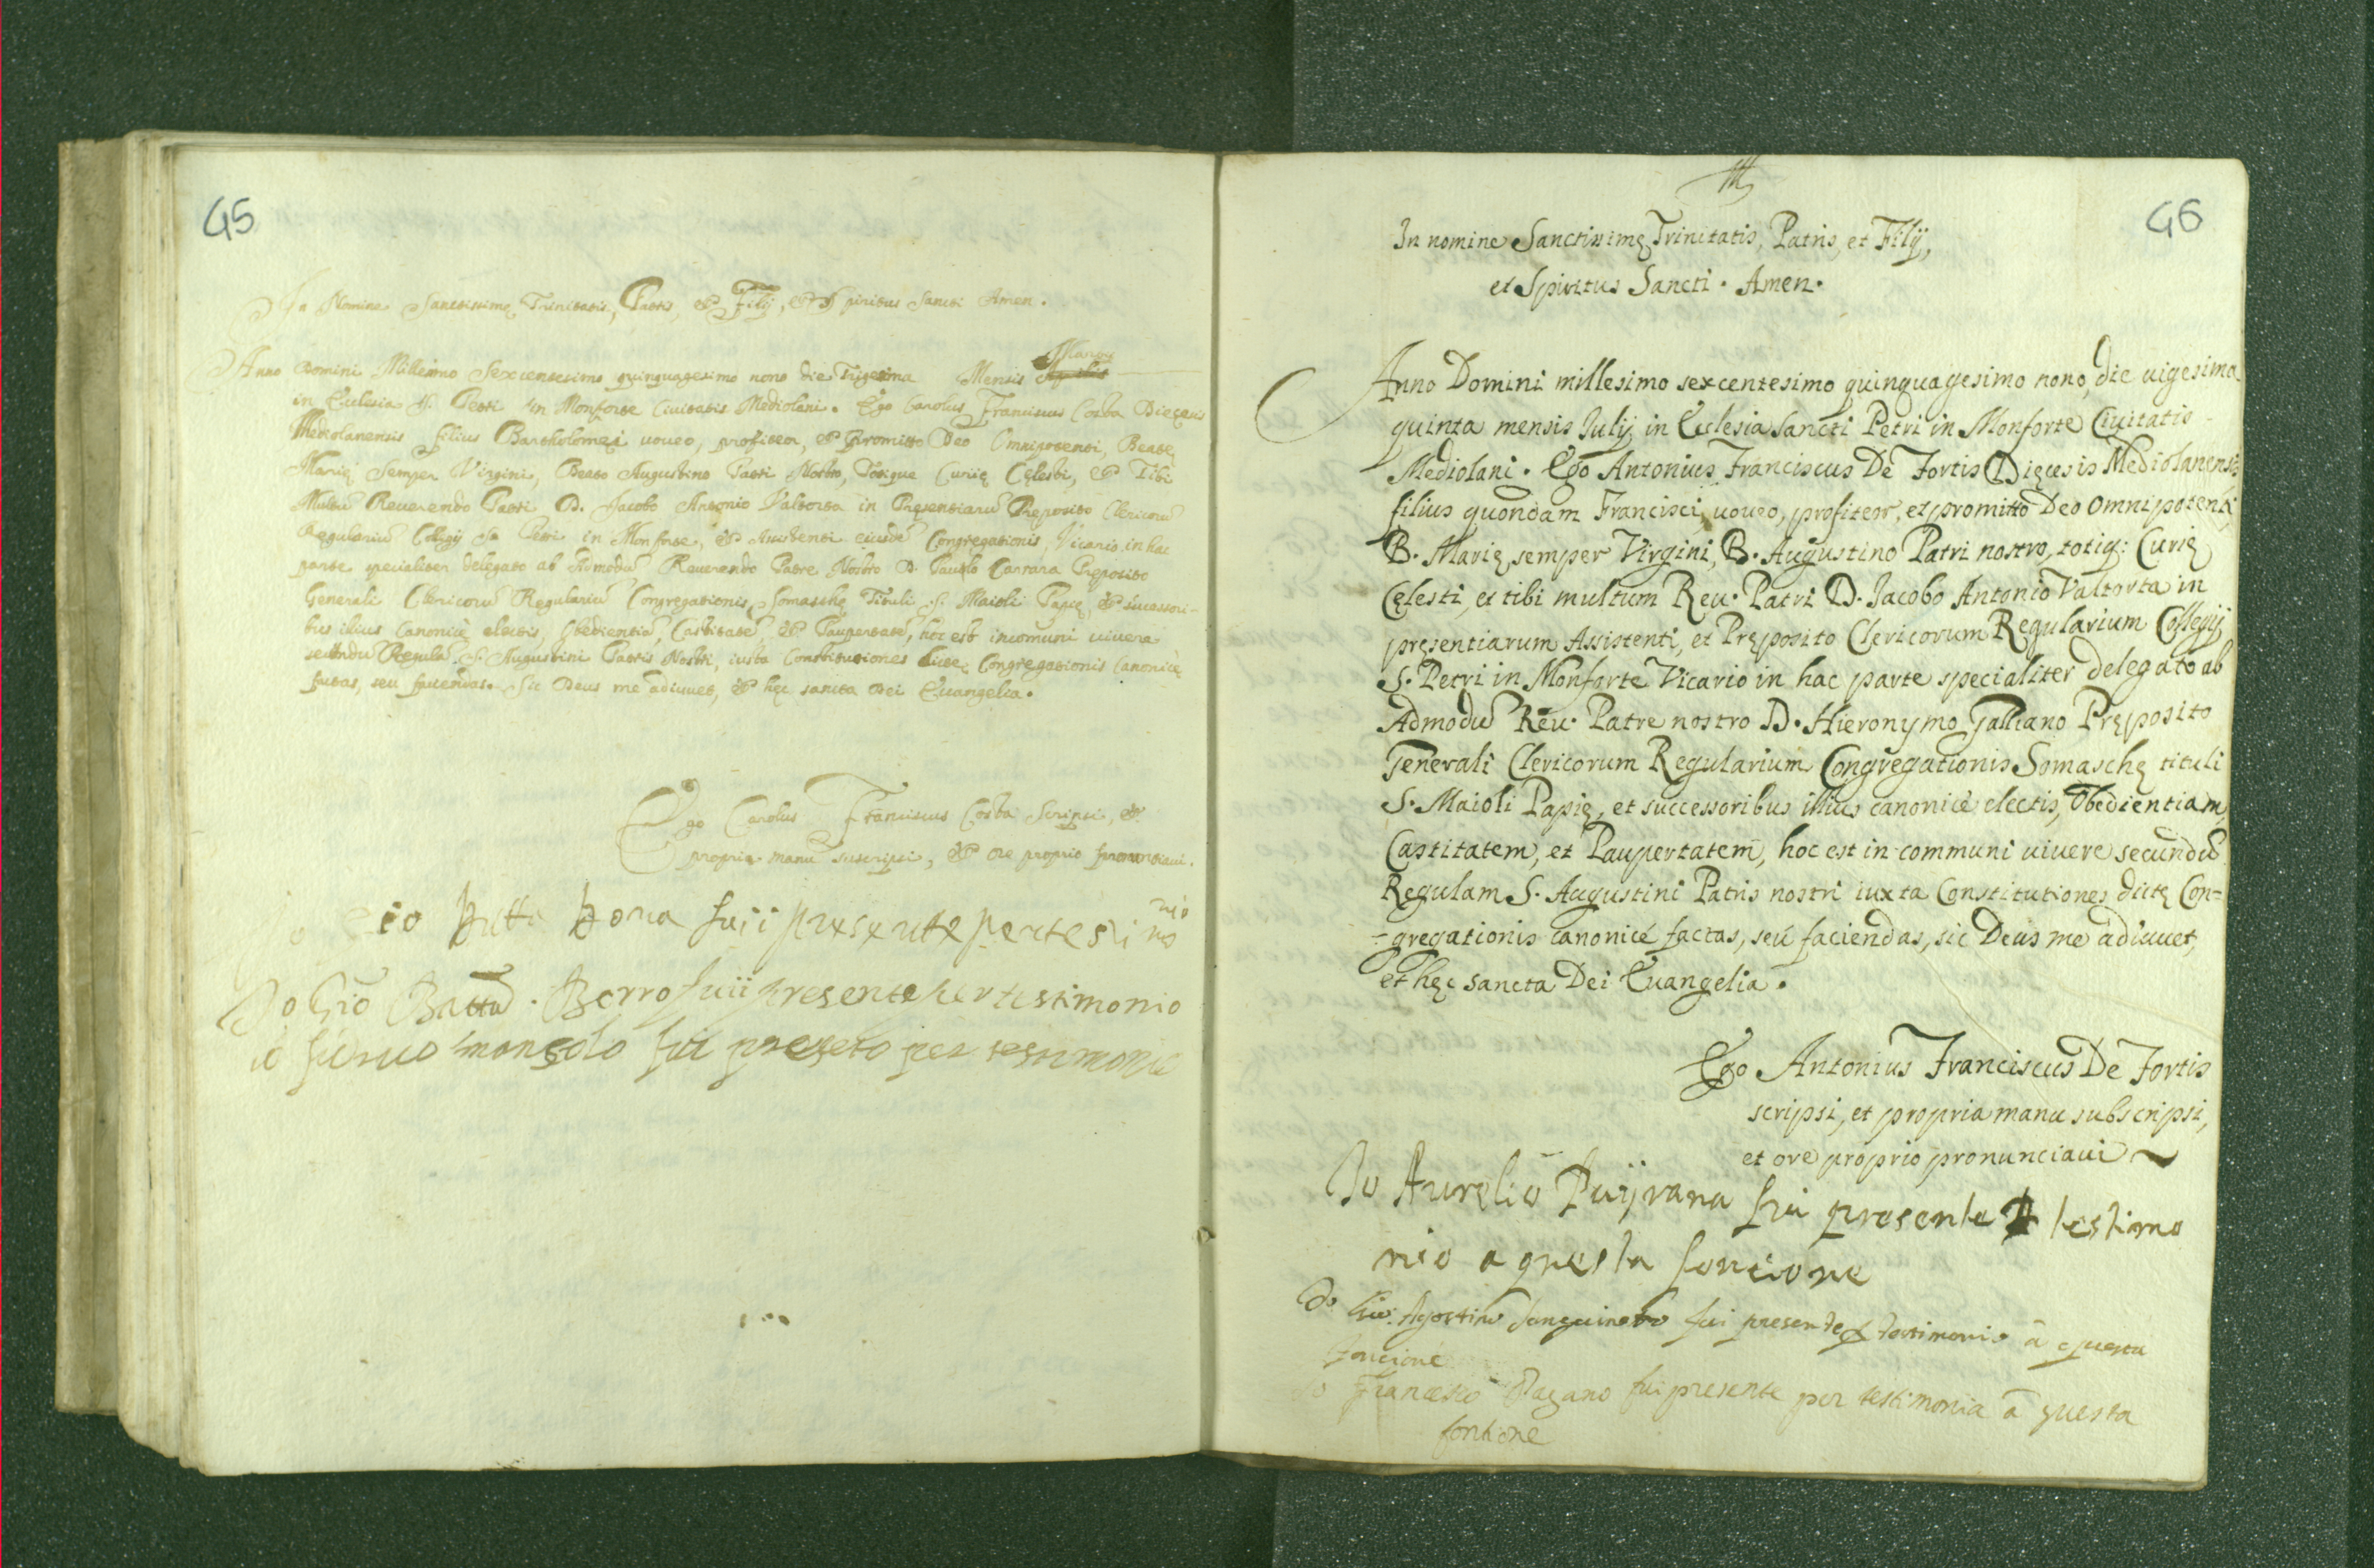 45
In Nomine Sanctissimę Trinitatis, Patris, et Filij, et Spiritus Sancti Amen.
Martij
Anno Domini Millesimo Sexcentesimo quinquagesimo nono die Trigesima Mensis
in Ecclesia S. Petri in Monforte Civitatis Mediolani. Ego Carolus Franciscus Costa Dięcesis
Mediolanensis filius Bartholomęi uoueo, profiteor, et promitto Deo Omnipotenti, Beatę
Marię semper Virgini, Beato Augustino Patri Nostro, Totique Curię Cęlesti, et Tibi
Multū Reuerendo Patri D. Jacobo Antonio Valtorta in Pręsentiarū Pręposito Clericorū
Regulariū Collegij S. Petri in Monforte, et Assistenti eiusdē Congregationis, Vicario in hac
parte specialiter delegato ab Admodū Reuerendo Patre Nostro D. Paulo Carrara Pręposito
Generali Clericorū Regulariū Congregationis Somaschę Tituli S. Maioli Papię, et successori-
bus illius Canonicè electis, Obedientiā, Castitatē, et Paupertatē, hoc est in comuni uiuere
secundū Regulā S. Augustini Patris Nostri, iuxta Constitutiones dictę Congregationis Canonicè
factas, seu faciendas. Sic Deus me adiuuet, et hęc sancta Dei Euangelia.
Ego Carolus Franciscus Costa Scripsi, et
propria manu suscripsi, et ore proprio pronuntiaui.
io
Io Gio Batta. Borro fuii presente per testimonio
io fui per testimonio
46
In nomine Sanctissimę Trinitatis, Patris, et Filij,
et Spiritus Sancti. Amen.
Anno Domini millesimo sexcentesimo quinquagesimo nono, die uigesima
quinta mensis Julij in Ecclesia Sancti Petri in Monforte Ciuitatis
Mediolani. Ego Antonius Franciscus De Fortis Dięcesis Mediolanensis
filius quondam Francisci uoueo, profiteor, et promitto Deo Omnipotenti,
B. Marię semper Virgini, B. Augustino Patri nostro, totiq: Curię
Cęlesti, et tibi multum Reu. Patri D. Iacobo Antonio Valtorta in
pręsentiarum Assistenti, et Pręposito Clericorum Regularium Collegij
S. Petri in Monforte Vicario in hac parte specialiter delegato ab
Admodū Reu. Patre nostro D. Hieronymo Galliano Pręposito
Generali Clericorum Regularium Congregationis Somaschę tituli
S. Maioli Papię, et successoribus illius canonicè electis, Obedientiam,
Castitatem, et Paupertatem, hoc est in communi uiuere secundū
Regulam S. Augustini Patris nostri iuxta Constitutiones dictę Con=
=gregationis canonicè factas, seu faciendas, sic Deus me adiuuet,
et hęc sancta Dei Euangelia.
Ego Antonius Franciscus De Fortis
scripsi, et propria manu subscripsi,
et ore proprio pronunciaui
Io Aurelio fui presente testimo
nio a questa foncione
Io Gio: Agostino Sanguineto fui presente testimonio à questa
foncione
Io Francesco Pagano fui presente per testimonia à questa
fontione